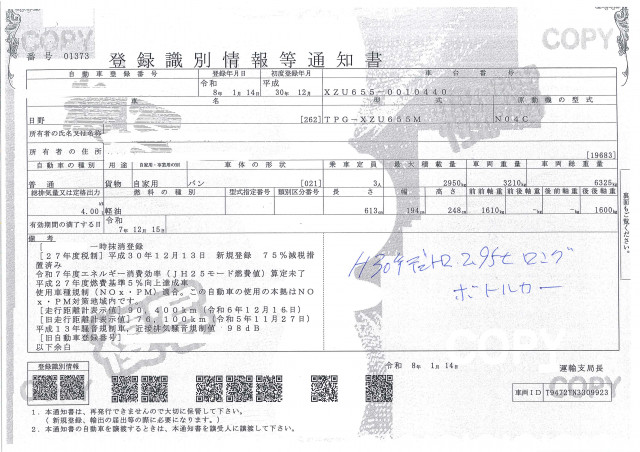 COPY COPY
番号 01373 登録識別情報等通知書
自動車登録番号 登録年月日 初度登録年月 車台番号
令和 8年 1月14日 平成 30年 12月 XZU655-0010440
車名 型式 原動機の型式
日野 [262] TPG-XZU655M N04C
所有者の氏名又は名称
所有者の住所 [19683]
自動車の種別 用途 自家用・事業用の別 車体の形状 乗車定員 最大積載量 車両重量 車両総重量
普通 貨物 自家用 バン [021] 3人 2950kg 3210kg 6325kg
総排気量又は定格出力 燃料の種別 型式指定番号 類別区分番号 長さ 幅 高さ 前前軸重 前後軸重 後前軸重 後後軸重
4.00 軽油 613cm 194cm 248cm 1610kg -kg -kg 1600kg
有効期間の満了する日 令和 7年 12月 15日
裏面もご覧ください。
備考
一時抹消登録
[27年度税制]平成30年12月13日 新規登録 75%減税措
置済み
令和7年度エネルギー消費効率(JH25モード燃費値)算定未了
平成27年度燃費基準5%向上達成車
使用車種規制(NOx・PM)適合。この自動車の使用の本拠はNO
x・PM対策地域内です。
[走行距離計表示値]90,400km(令和6年12月16日)
[旧走行距離計表示値]76,100km(令和5年11月27日)
平成13年騒音規制車、近接排気騒音規制値:98dB
[旧自動車登録番号]
以下余白
H30年デュトロ 2.95t ロング
ボトルカー
登録識別情報
令和 8年 1月14日
運輸支局長
車両ID T9472TN3309923
1.本通知書は、再発行できませんので大切に保管して下さい。
(新規登録、輸出の届出等の際に必要になります。)
2.本通知書の自動車を譲渡するときは、本通知書を譲受人に譲渡して下さい。
COPY COPY